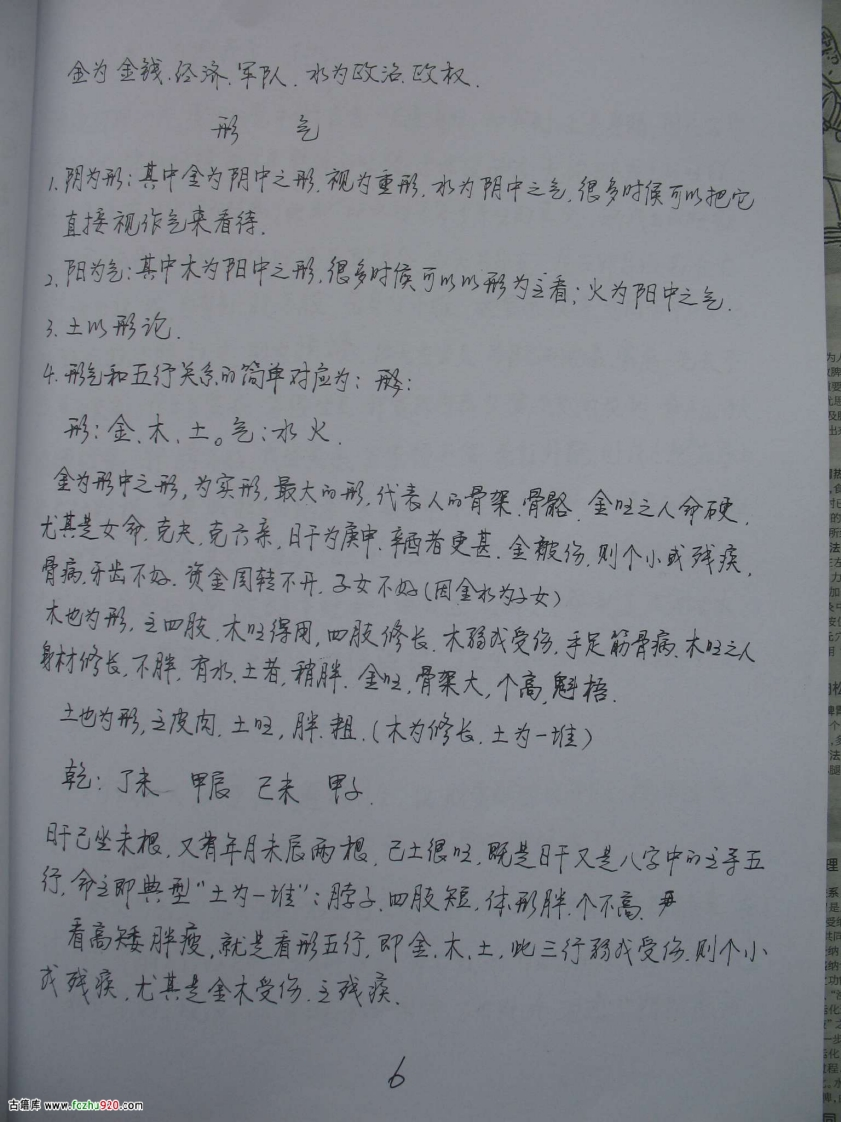 金为金钱、经济、军队、水为政治、政权.
形 气
1. 阴为形：其中金为阴中之形，视为重形，水为阴中之气，很多时候可以把它
直接视作气来看待.
2. 阳为气：其中木为阳中之形，很多时候可以以形为主看；火为阳中之气.
3. 土以形论.
4. 形气和五行关系的简单对应为：
形：金、木、土。气：水火.
金为形中之形，为实形，最大的形，代表人的骨架、骨骼、金旺之人命硬，
尤其是女命，克夫，克六亲，日干为庚申、辛酉者更甚. 金被伤，则个小或残疾，
骨病，牙齿不好. 资金周转不开，子女不好(因金水为子女)
木也为形，主四肢、木旺得用，四肢修长. 木弱或受伤，手足筋骨病、木旺之人
身材修长，不胖，有水、土者，稍胖. 金旺，骨架大，个高，魁梧.
土也为形，主皮肉、土旺，胖、粗. (木为修长、土为一堆)
乾：丁未 甲辰 己未 甲子.
日干己坐未根，又有年月未辰两根，己土很旺，既是日干又是八字中的主导五
行，命主即典型“土为一堆”：脖子、四肢短，体形胖、个不高.
看高矮胖瘦，就是看形五行，即金、木、土，此三行弱或受伤，则个小
或残疾，尤其是金木受伤、主残疾.
6
古籍库 www.fczhu920.com